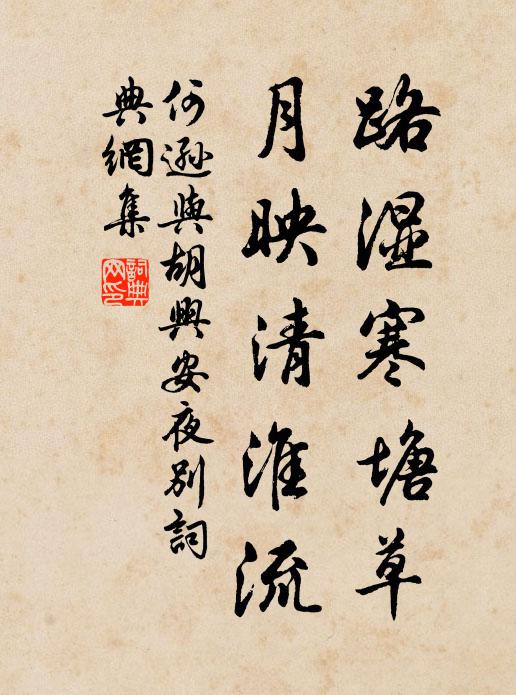 路湿寒塘草
月映清淮流
何遜與胡興安夜別詞
典網集
詞典
网印